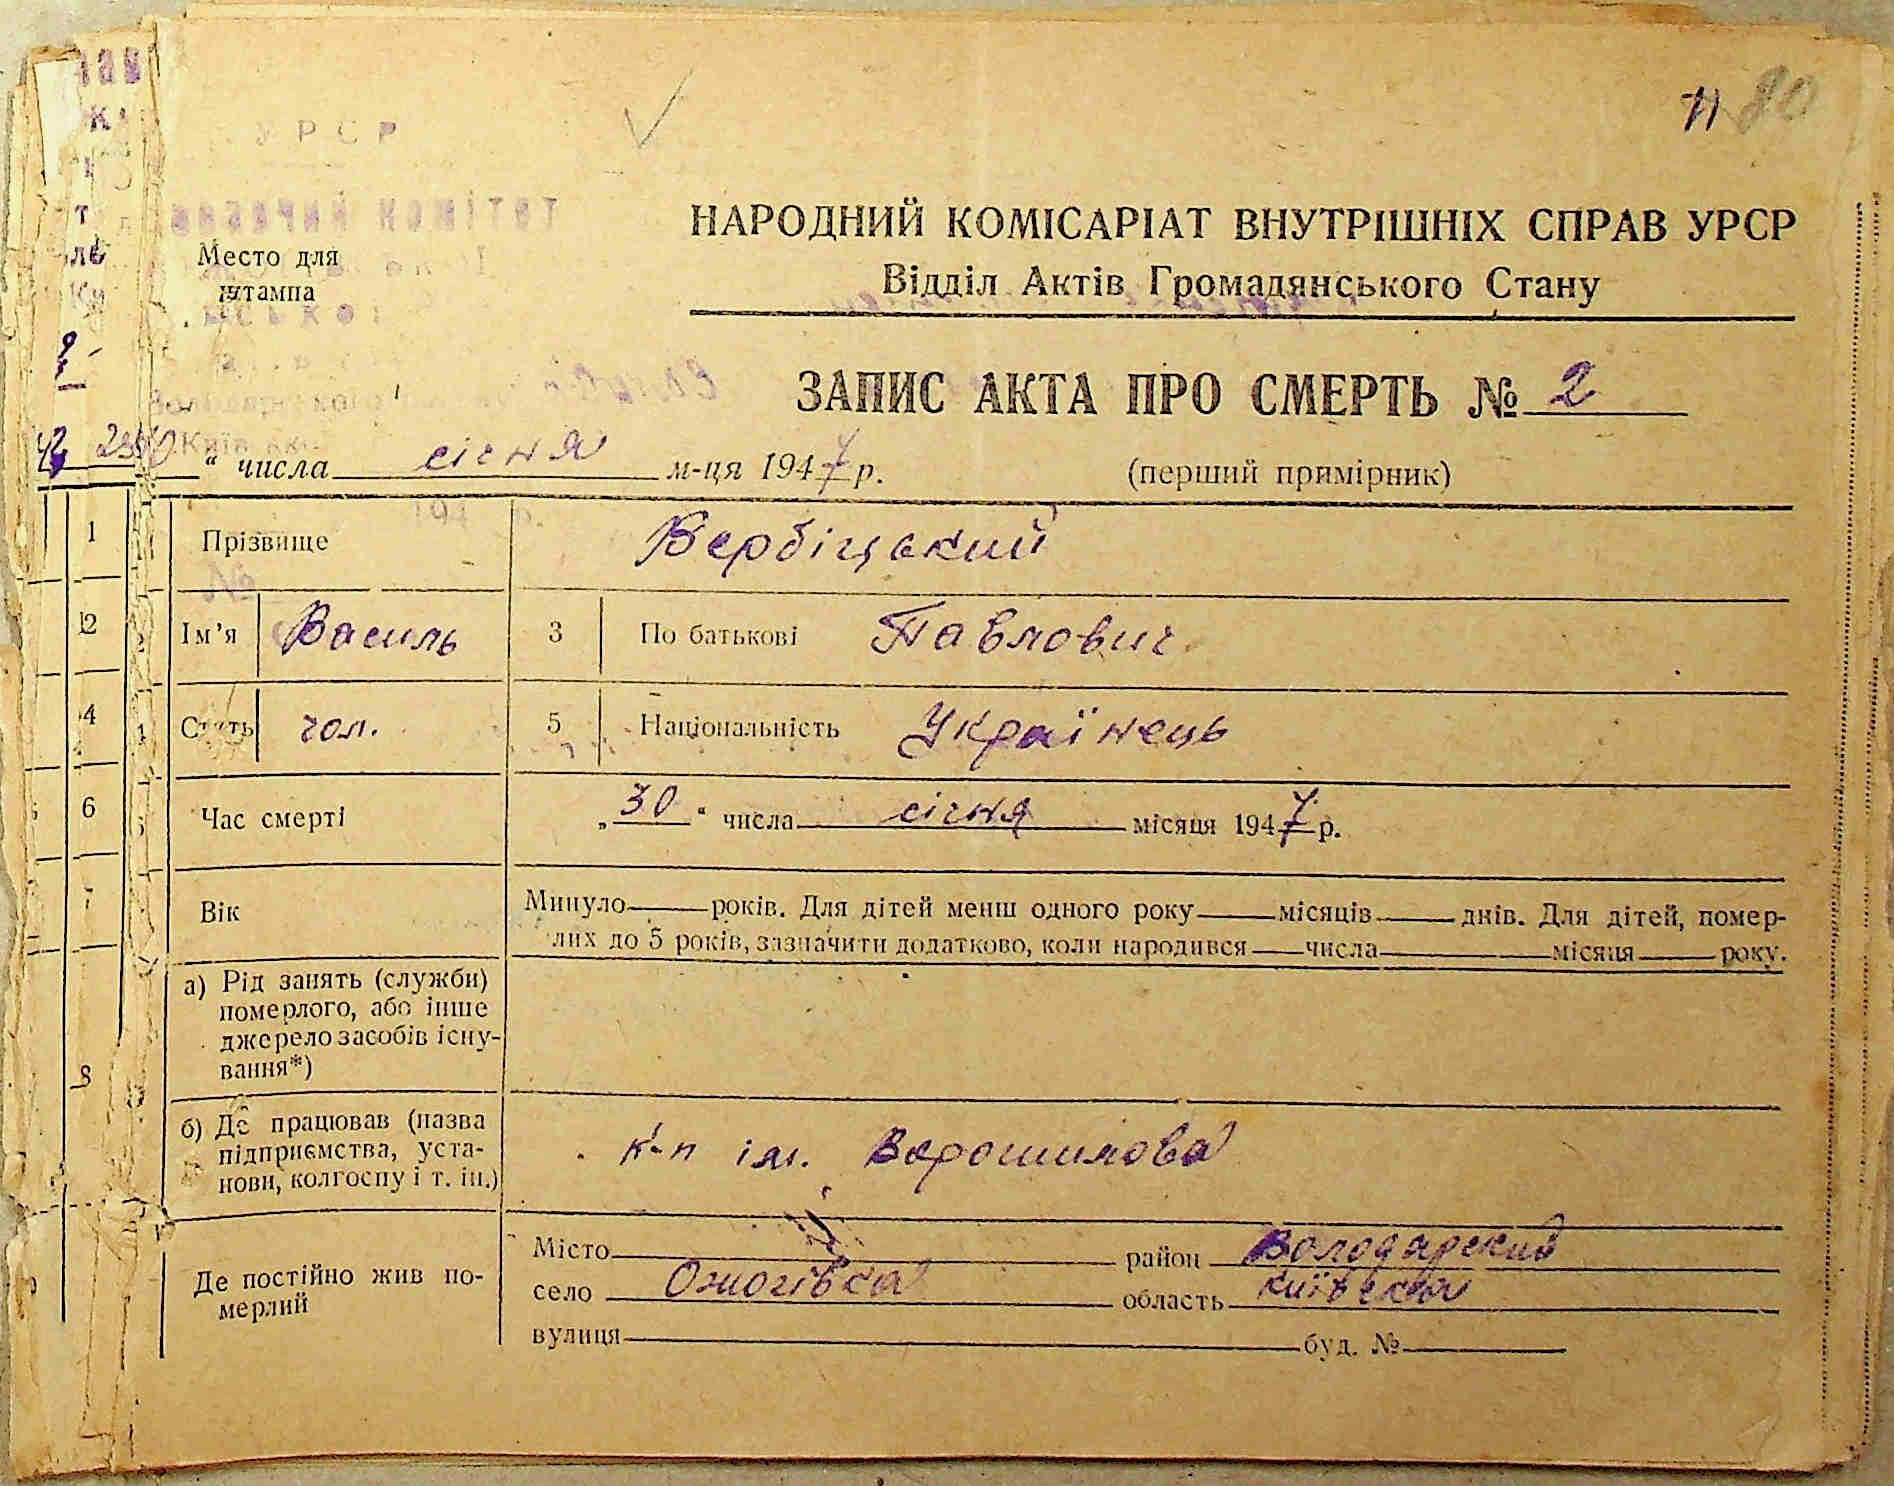 11 80
УРСР
НАРОДНИЙ КОМІСАРІАТ ВНУТРІШНІХ СПРАВ УРСР
Место для
штампа
Відділ Актів Громадянського Стану
ЗАПИС АКТА ПРО СМЕРТЬ № 2
“ числа січня м-ця 1947 р. (перший примірник)
1 Прізвище Вербіцький
2 Ім’я Василь 3 По батькові Павлович
4 Стать чол. 5 Національність Українець
6 Час смерті „30“ числа січня місяця 1947 р.
7 Вік Минуло років. Для дітей менш одного року місяців днів. Для дітей, помер-
лих до 5 років, зазначити додатково, коли народився числа місяця року.
8 а) Рід занять (служби)
померлого, або інше
джерело засобів існу-
вання*)
б) Де працював (назва
підприємства, уста-
нови, колгоспу і т. ін.) к-п ім. Ворошилова
Де постійно жив по-
мерлий
Місто район Володарский
село Ожогівка область київська
вулиця буд. №